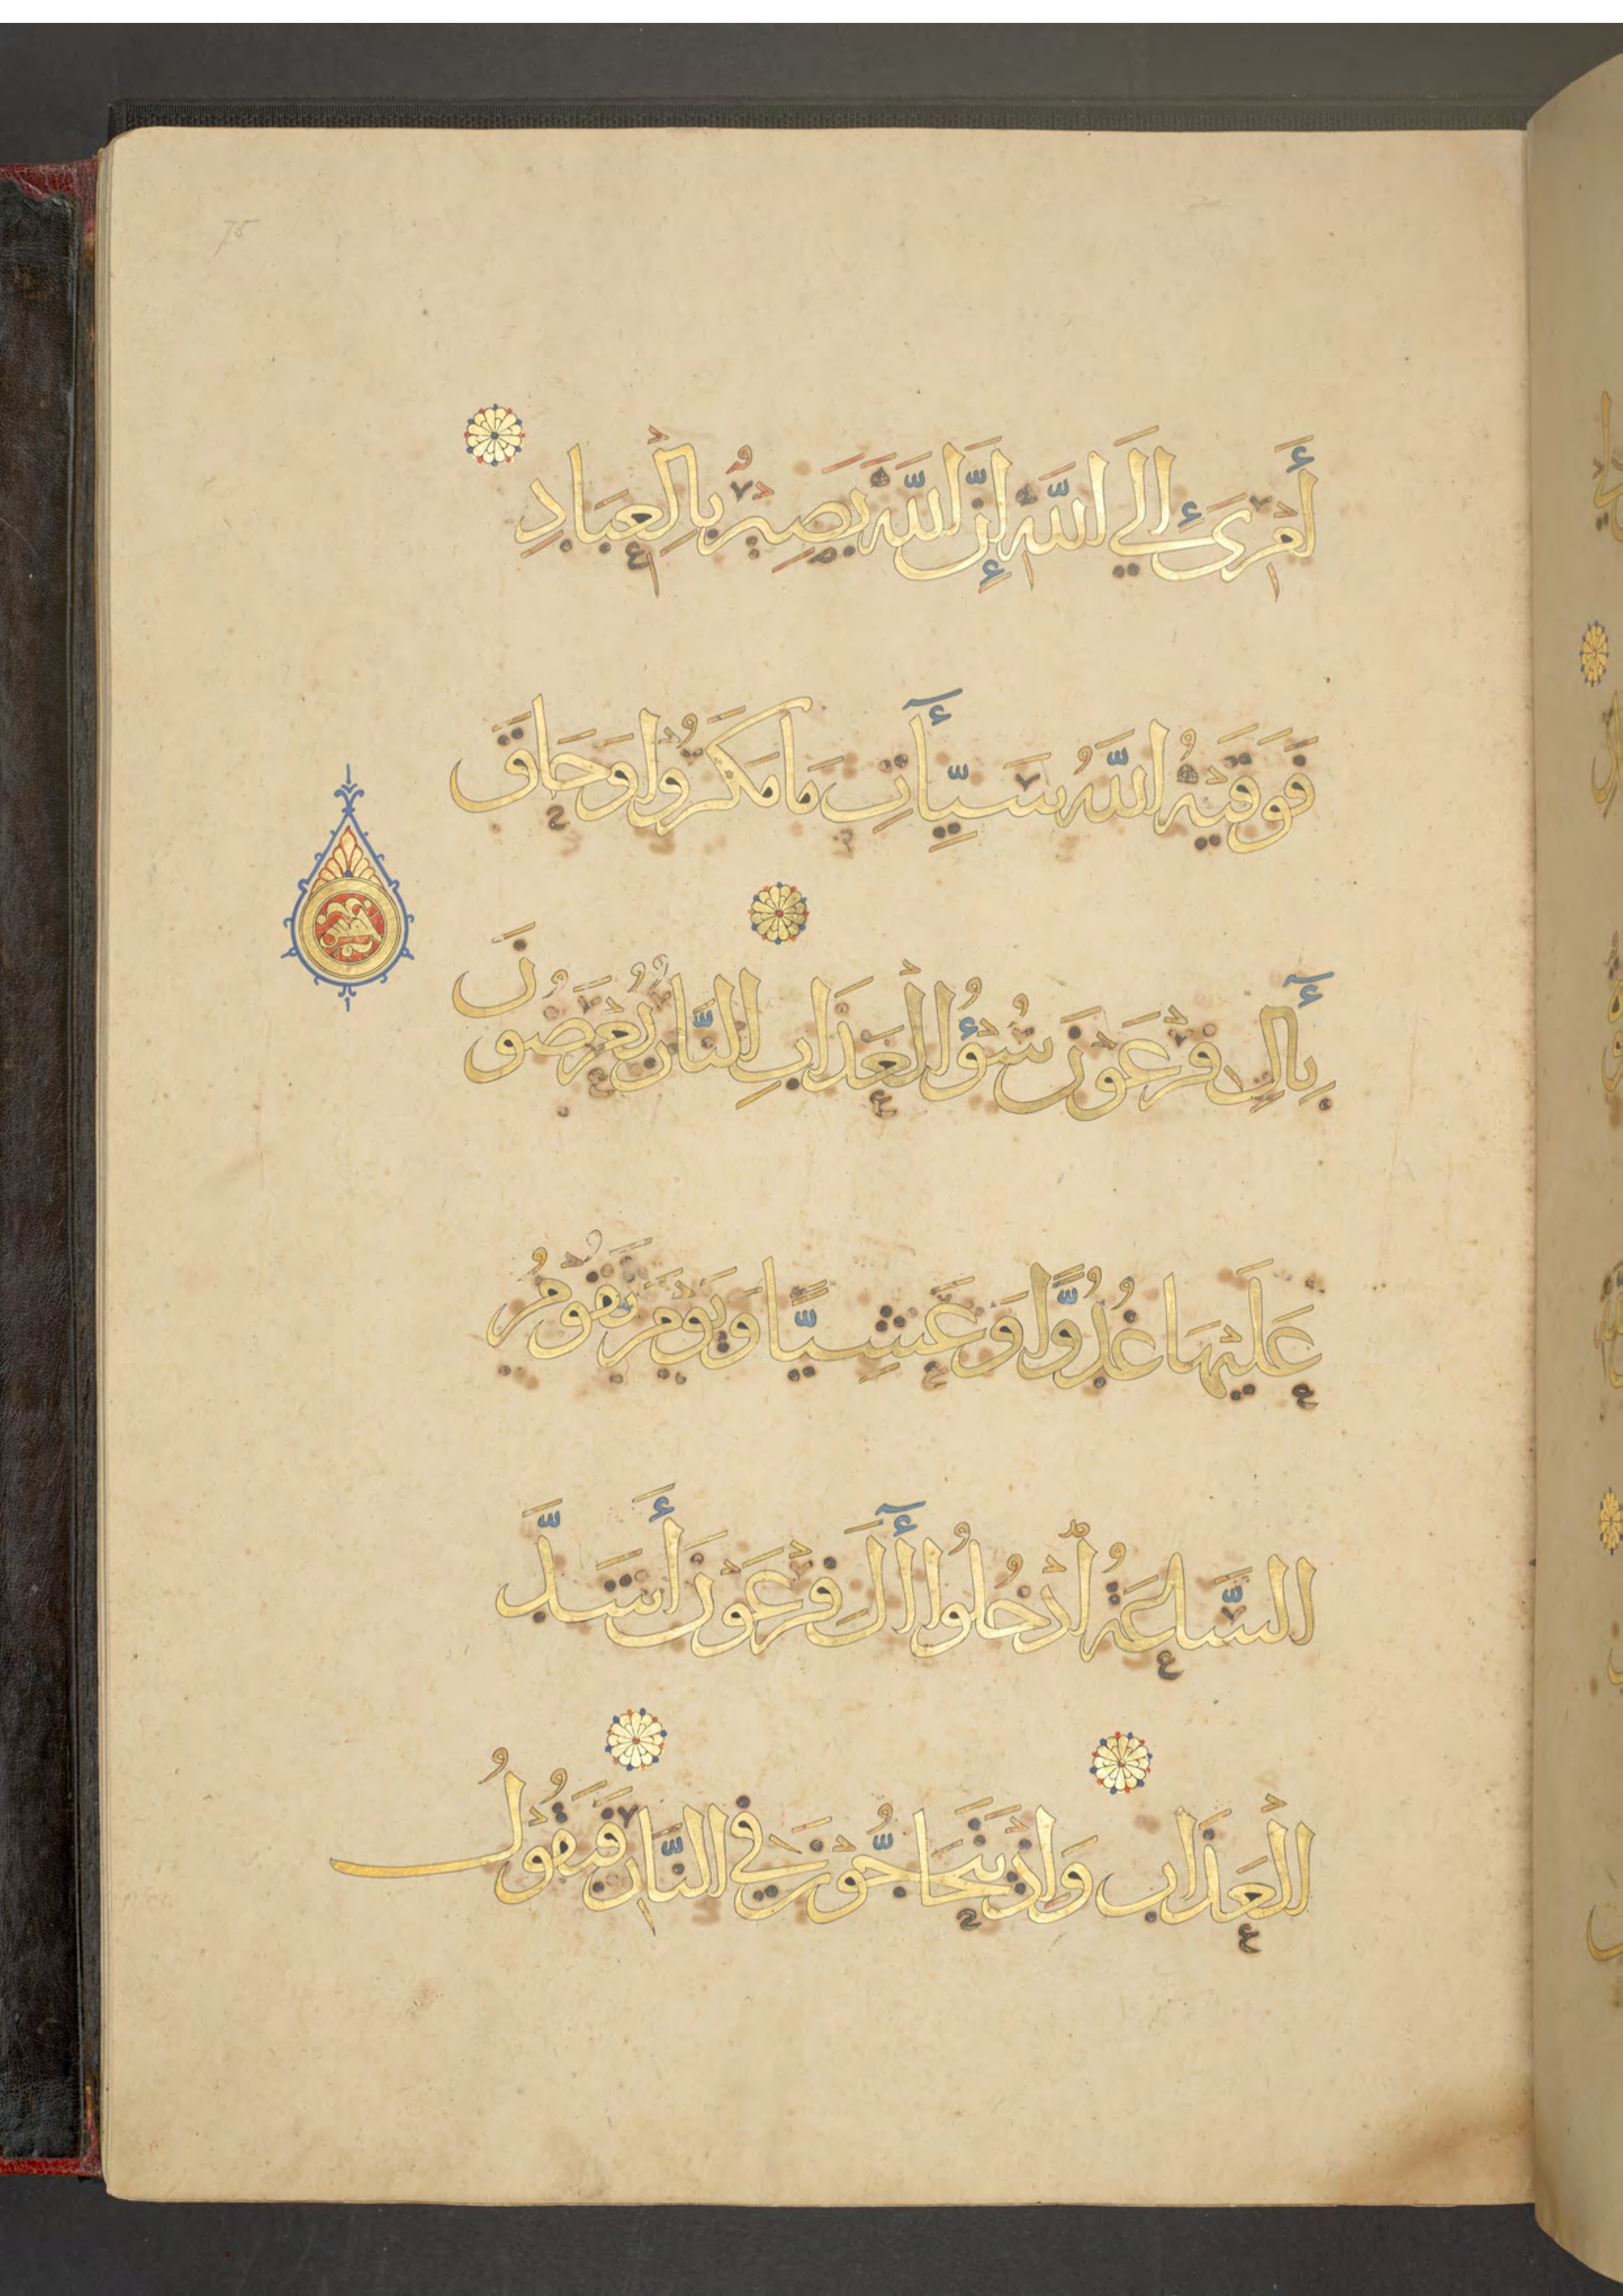 75
أَمْرِىَ إِلَى اللَّهِ إِنَّ اللَّهَ بَصِيْرٌ بِالْعِبَادِ
فَوَقَيْهُ اللَّهُ سَيِّأَتِ مَا مَكَرُوْا وَحَاقَ
بِأَلِ فِرْعَوْنَ سُوْءُ الْعَذَابِ النَّارُ يُعْرَضُوْنَ
عَلَيْهَا غُدُوًّا وَعَشِيًّا وَيَوْمَ تَقُوْمُ
السَّاعَةُ أَدْخِلُوا أَلَ فِرْعَوْنَ أَشَدَّ
الْعَذَابِ وَإِذْ يَتَحَاجُّوْنَ فِي النَّارِ فَيَقُوْلُ